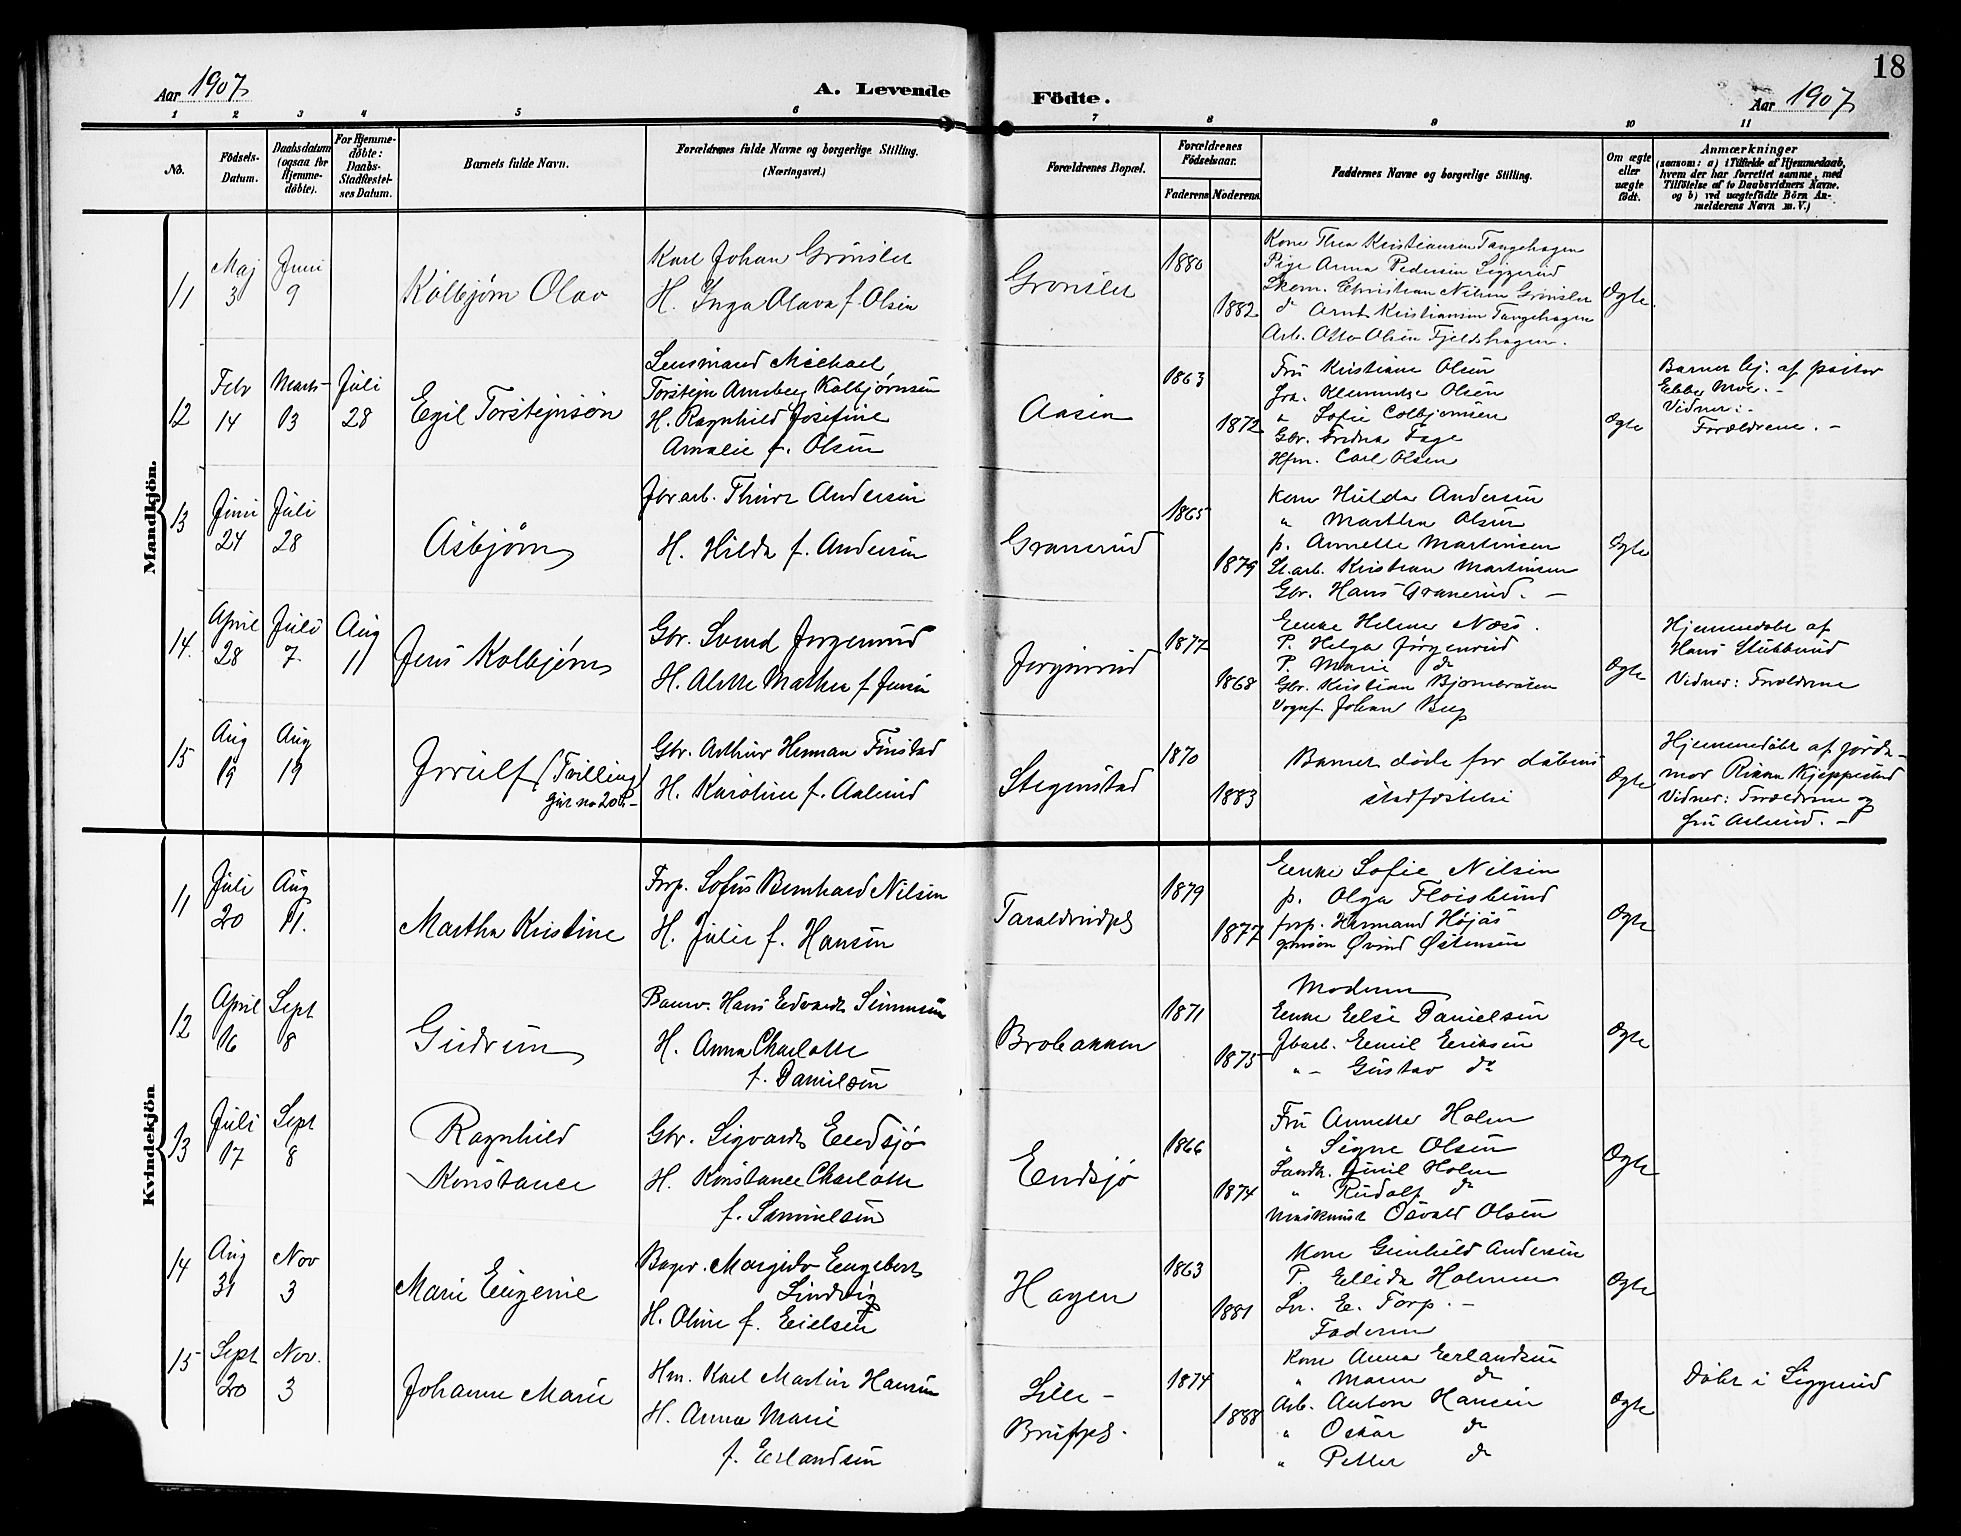 18
Aar 1907
A. Levende
Födte.
Aar 1907
1 2 3 4 5 6 7 8 9 10 11
No.
Födsels-
Datum.
Daabsdatum
(ogsaa for
Hjemme-
döbte).
For Hjemme-
döbte:
Daabs-
Stadfæstel-
ses Datum.
Barnets fulde Navn.
Forældrenes fulde Navne og borgerlige Stilling.
(Næringsvei.)
Forældrenes Bopæl.
Forældrenes
Födselsaar.
Faderens
Moderens
Faddernes Navne og borgerlige Stilling.
Om ægte
eller
uægte
födt.
Anmærkninger
(saasom: a) i Tilfælde af Hjemmedaab,
hvem der har forrettet samme, med
Tilföielse af to Daabsvidners Navne.
og b) ved uægtefödte Börn An-
melderens Navn m. V.)
Mandkjön.
11
Maj
3
Juni
9
Kolbjørn Olav
Karl Johan Grønslet
H. Inga Olava f. Olsen
Grønslet
1880
1882
Kone Thea Kristiansen Tangehagen
Pige Anna Pedersen Siggerud
Skom. Christian Nilsen Grønslet
do Arnt Kristiansen Tangehagen
Arb. Otto Olsen Fjeldshagen.
Ægte
12
Febr
14
Marts
13
Juli
28
Egil Torstejnsøn
Lensmand Michael
Torstejn Arnsberg Kolbjørnsen
H. Ragnhild Josefine
Amalie f. Olsen
Aasen
1863
1872
Fru Kristiane Olsen
Frk. Klemmetse Olsen
" Sofie Colbjørnsen
Gbr. Fredrik Fage
Hfm. Carl Olsen
Ægte
Barnet hj. af pastor
Ebbe Moe. -
Vidner: -
Forældrene. -
13
Juni
24
Juli
28
Asbjørn
Jbr arb. Thure Andersen
H. Hilda f. Andersen
Granerud
1865
1879
Kone Hulda Andersen
" Martha Olsen
p. Annette Martinsen
St. arb. Kristian Martinsen
Gbr. Hans Granerud. -
Ægte
14.
April
28
Juli
7.
Aug
11
Jens Kolbjørn
Gbr. Svend Jørgenrud
H. Alette Mathea f. Jensen
Jørgenrud
1877
1868
Enke Helene Næss.
P. Helga Jørgenrud
P. Marie do
Gbr. Kristian Bjørnebraaten
Vognf. Johan Berg
Ægte
Hjemmedøbt af
Hans Stubberud
Vidner: Forældrene
15
Aug
19
Aug
19
Jorulf (Tvilling)
Gbr. Arthur Herman Finstad
H. Karoline f. Aalerud
Stegenstad
1870
1883
Barnet døde før daabens
stadfæstelse
Ægte
Hjemmedøbt af jorde-
mor Rikka Kjeppestad
Vidner: Forældrene og
fru Aalerud. -
Kvindekjön
11
Juli
20
Aug
11.
Martha Kristine
Forp. Sofus Bernhard Nilsen
H. Julie f. Hansen
Taraldrudpls
1879
1877
Enke Sofie Nilsen
p. Olga Floisbund
forp. Hermand Højås
Øvind Østensen
Ægte
12
April
16
Sept
8
Gudrun
Banev. Hans Edvard Simensen
H. Anna Charlotte
f. Danielsen
Brobakken
1871
1875
Moderen
Enke Else Danielsen
Jbarb. Emil Eriksen
" - Gustav do
Ægte
13
Juli
17
Sept
8
Ragnhild
Konstance
Gbr. Sigvard Endsjø
H. Konstance Charlotte
f. Samuelsen
Endsjø
1866
1874
Fru Annette Holm
" Signe Olsen
Landh. Emil Holm
" Rudolf do
Maskinist Osvald Olsen
Ægte
14
Aug
31
Nov
3
Marie Eugenie
Bager. Margido Engebert
Lindvig
H. Oline f. Eielsen
Hagen
1863
1881
Kone Gunhild Andersen
P. Ellida Holmen
Sn. E. Torp. -
Faderen
Ægte
15
Sept
20
Nov.
3
Johanne Marie
Hm. Karl Martin Hansen
H. Anna Marie
f. Erlandsen
Lille -
Brufpls.
1874
1888
Kone Anna Erlandsen
" Maren do
Arb. Anton Hansen
" Oskar do
" Petter do
Ægte
Døbt i Siggerud